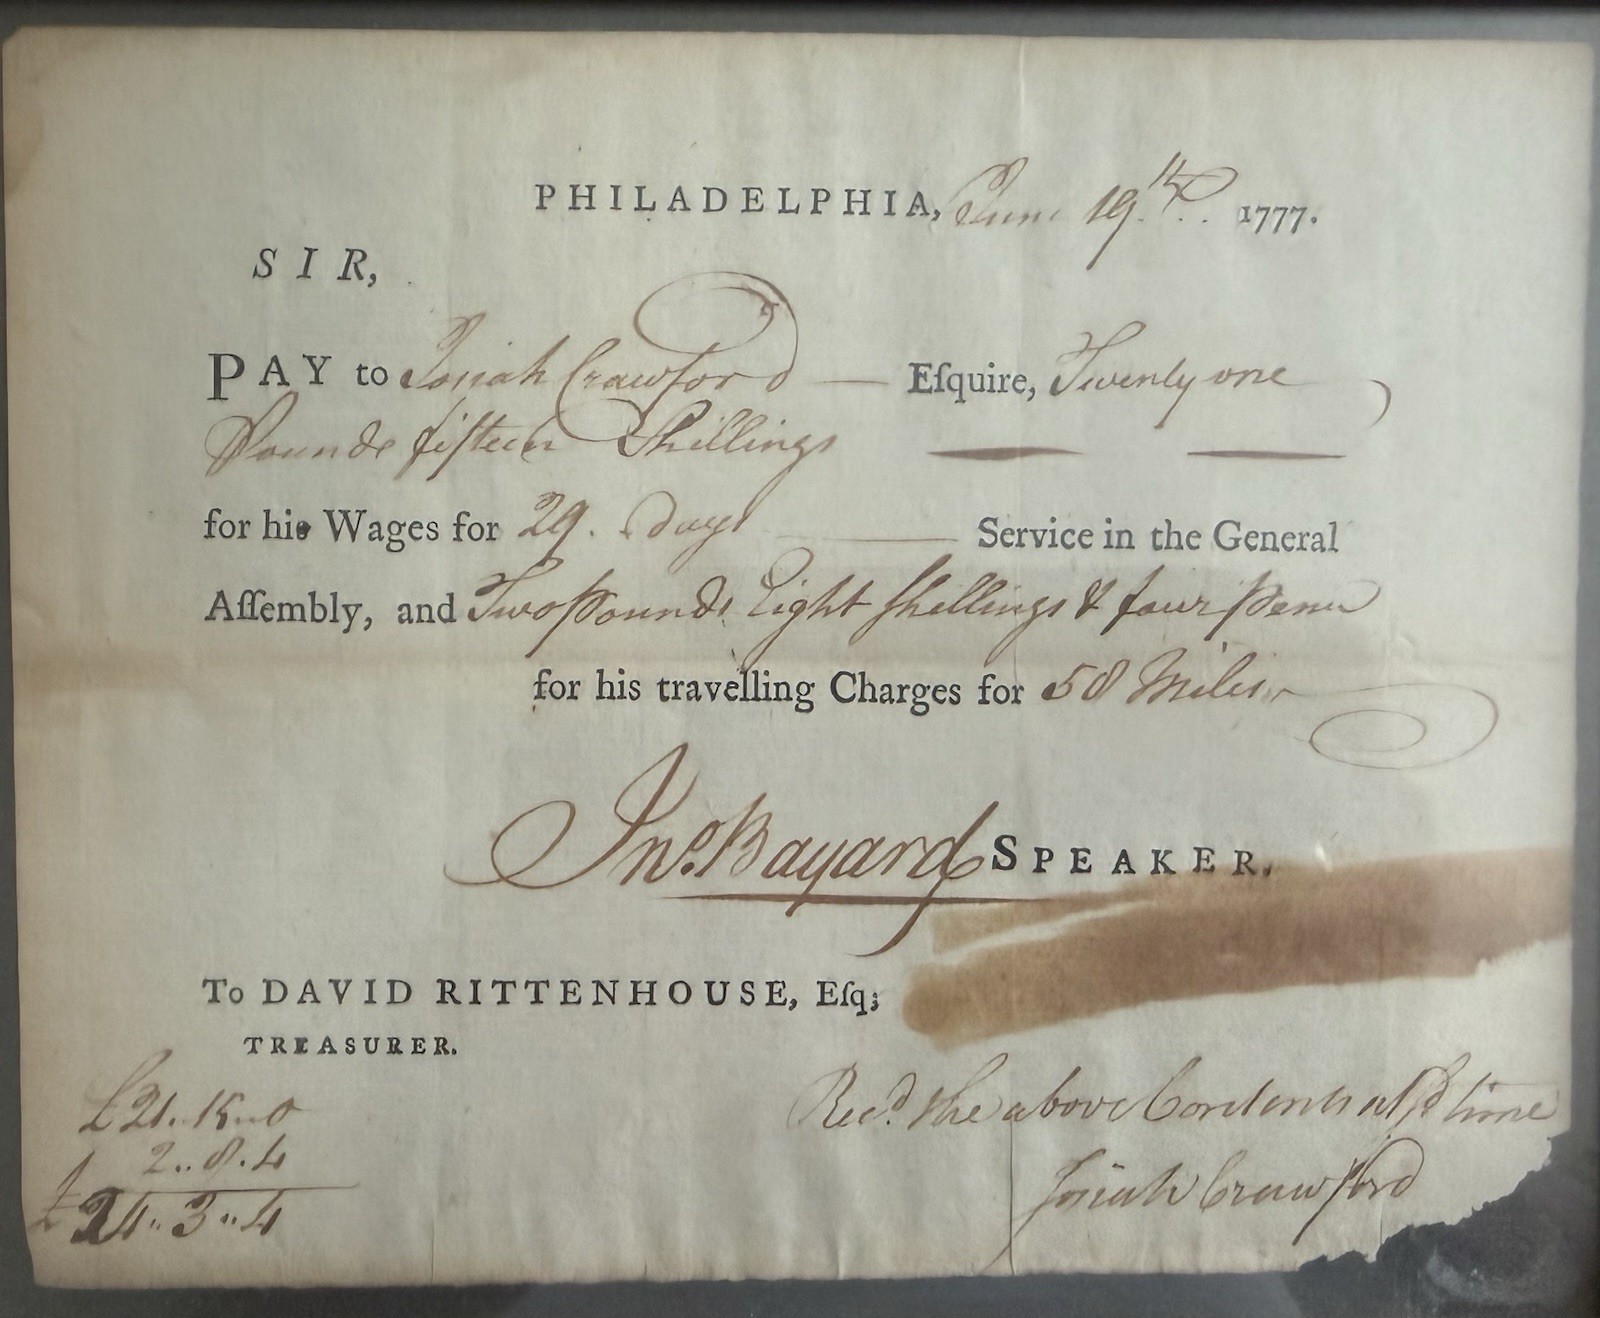 PHILADELPHIA, June 19th. 1777.
SIR,
PAY to Josiah Crawford — Eſquire, Twenty one
Pounds fifteen Shillings
for his Wages for 29. days — Service in the General
Aſſembly, and Two pounds Eight ſhillings & four penc
for his travelling Charges for 58 Miles
Jno. Bayard SPEAKER.
To DAVID RITTENHOUSE, Eſq;
TREASURER.
£21..15..0
2..8.4
£24..3..4
Recd. the above Contents at Sd time
Josiah Crawford